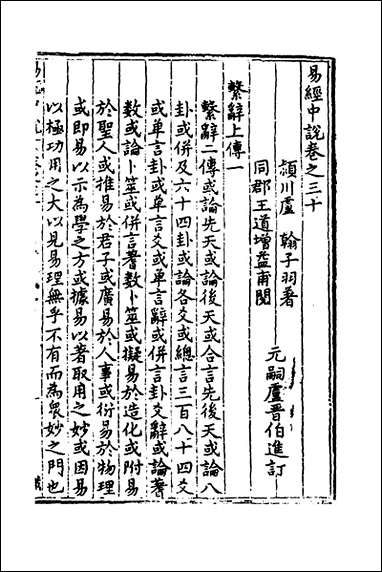 易經中說卷之三十
潁川盧 翰子羽著
同郡王道增益甫閱
元嗣盧晉伯進訂
繫辭上傳一
繫辭二傳或論先天或論後天或合言先後天或論八
卦或併及六十四卦或論各爻或總言三百八十四爻
或单言卦或单言爻或单言辭或併言卦爻辭或論蓍
数或論卜筮或併言蓍数卜筮或擬易於造化或附易
於聖人或推易於君子或廣易於人事或衍易於物理
或即易以示為學之方或據易以著取用之妙或因易
以極功用之大以見易理無乎不有而為衆妙之門也